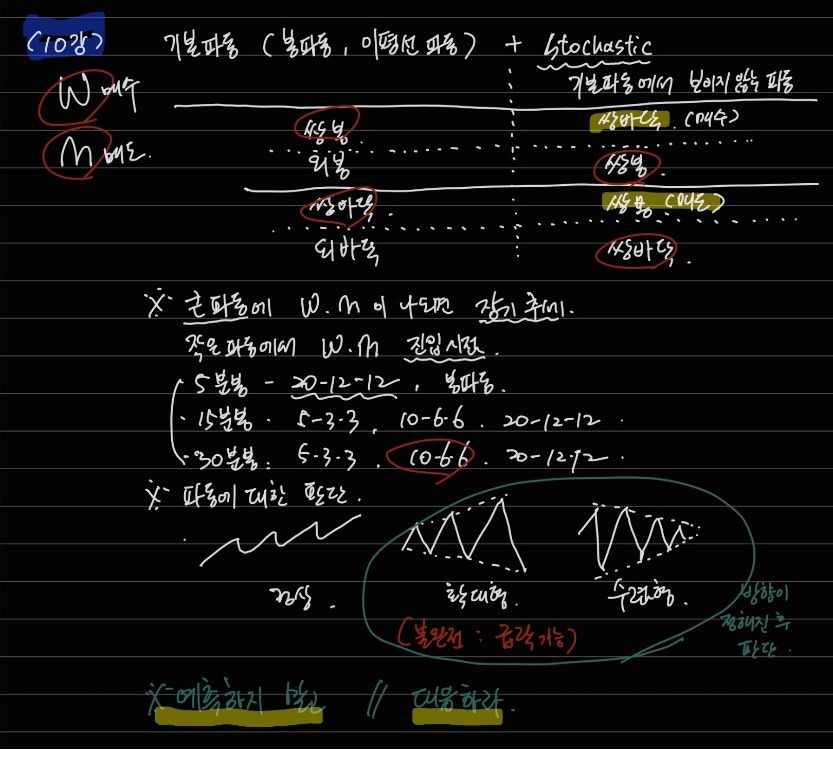 (10강) 기본파동 (봉파동, 이평선 파동) + Stochastic
W 매수 기본파동에서 보이지 않는 파동
쌍봉 쌍바닥 (매수)
M 매도.
외봉 쌍봉.
쌍바닥. 쌍봉 (매도)
외바닥 쌍바닥.
※ 큰 파동에 W.M이 나오면 장기 추세.
작은 파동에서 W.M 진입시점.
· 5분봉 - 20-12-12, 봉파동.
· 15분봉. 5-3-3, 10-6-6. 20-12-12.
· 30분봉. 5-3-3. 10-6-6. 20-12-12.
※ 파동에 대한 판단.
정상. 확대형. 수렴형.
(불완전 : 급락가능)
방향이
정해진 후
판단.
※ 예측하지 말고 // 대응하라.